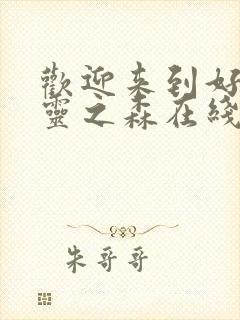 歡迎来到好
靈之森在綫
朱哥哥